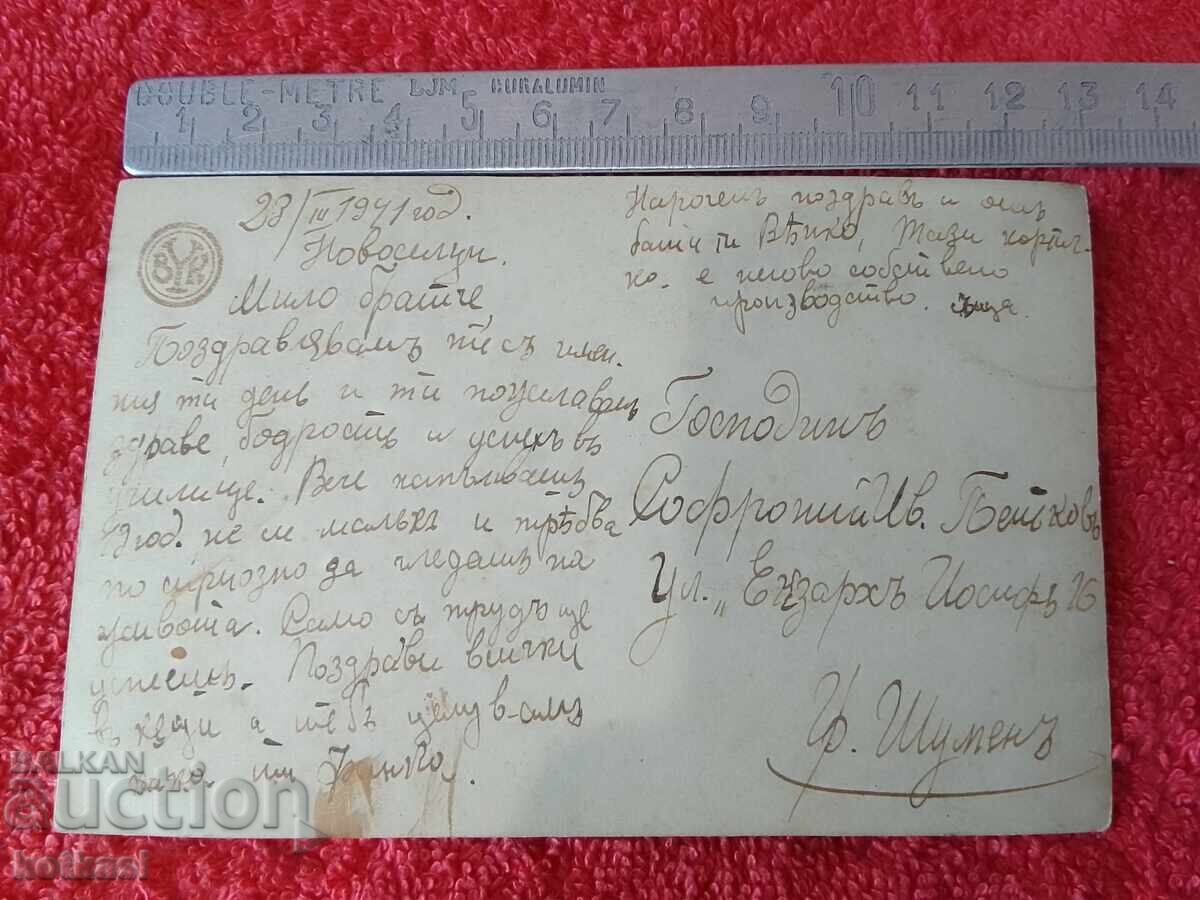 DOUBLE-METRE BJM DURALUMIN
1 2 3 4 5 6 7 8 9 10 11 12 13 14
23/III 1941 год.
Новоселци.
Мило братче,
Поздравявамъ те съ имен.
ния ти день и ти пожелавамъ
здраве, бодрость и успехъ въ
училище. Вече напълвашъ
год. не си малъкъ и трѣбва
по сериозно да гледашъ на
живота. Само съ трудъ ще
успеешъ. Поздрави всички
въ кѫщи а тебъ целувамъ
кака ти
Нароченъ поздравъ и отъ
бачи ти Вѣлко, Тази картич-
ка е негово собствено
производство. сѫща.
Господинъ
Софроний Ив. Пейковъ
Ул. „Екзархъ Иосифъ 16
Гр. Шуменъ
BALKAN
auction
kotkasl